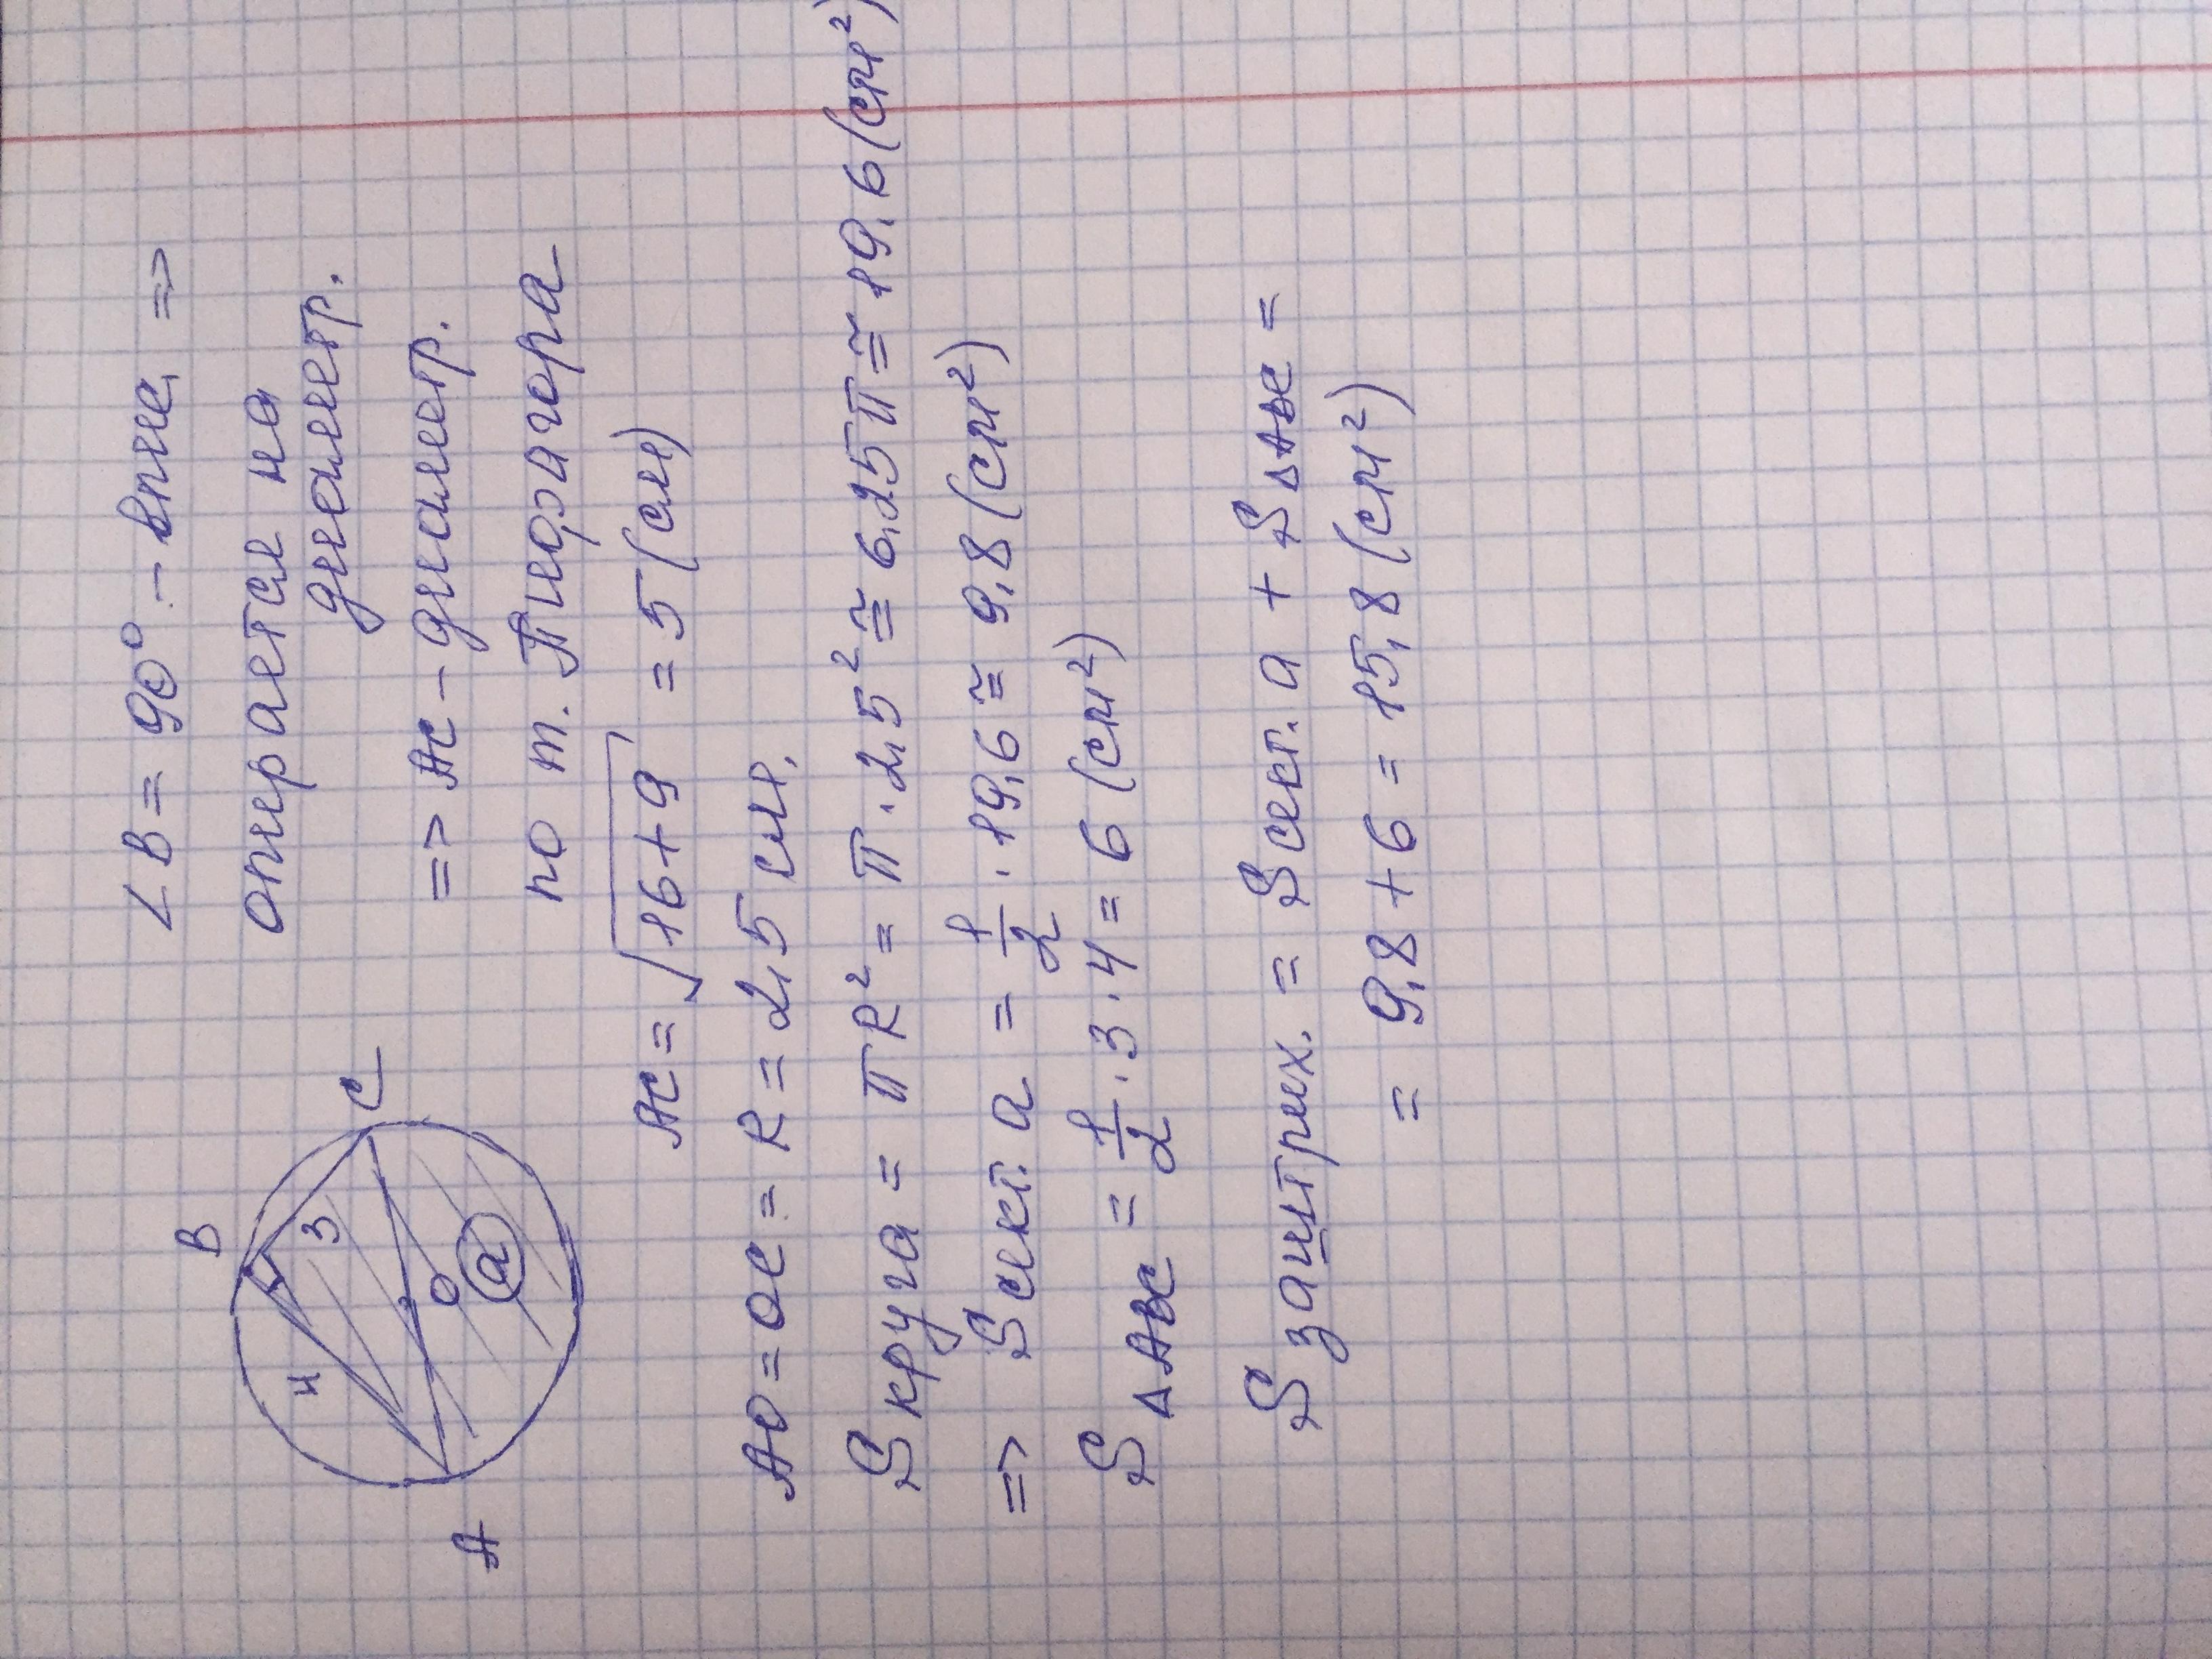 ∠B = 90° - впис, =>
опирается на
диаметр.
=> AC - диаметр.
по т. Пифагора
AC = √16+9 = 5 (см)
B
4
3
C
O
a
A
AO = OC = R = 2,5 см.
S круга = πR² = π · 2,5² ≅ 6,25π ≅ 19,6 (см²)
=> S сект. a = 1/2 · 19,6 ≅ 9,8 (см²)
S △ABC = 1/2 · 3 · 4 = 6 (см²)
S заштрих. = S сект. a + S △ABC =
= 9,8 + 6 = 15,8 (см²)